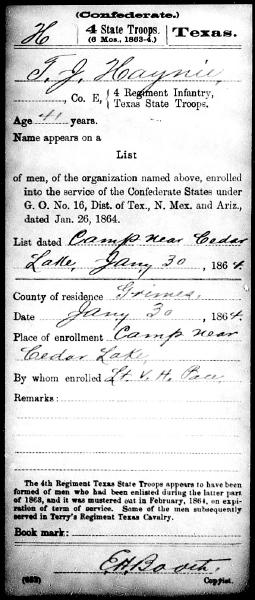 (Confederate.)
H
4 State Troops.
(6 Mos., 1863-4.)
Texas.
T. J. Haynie,
, Co. E,
4 Regiment Infantry,
Texas State Troops.
Age 41 years.
Name appears on a
List
of men, of the organization named above, enrolled
into the service of the Confederate States under
G. O. No. 16, Dist. of Tex., N. Mex. and Ariz.,
dated Jan. 26, 1864.
List dated Camp near Cedar
Lake, Jany 30, 1864.
County of residence Grimes.
Date Jany 30, 1864.
Place of enrollment Camp near
Cedar Lake,
By whom enrolled Lt. V. H.
Remarks:
The 4th Regiment Texas State Troops appears to have been
formed of men who had been enlisted during the latter part
of 1863, and it was mustered out in February, 1864, on expi-
ration of term of service. Some of the men subsequently
served in Terry's Regiment Texas Cavalry.
Book mark:
E H Booth.
(653)
Copyist.